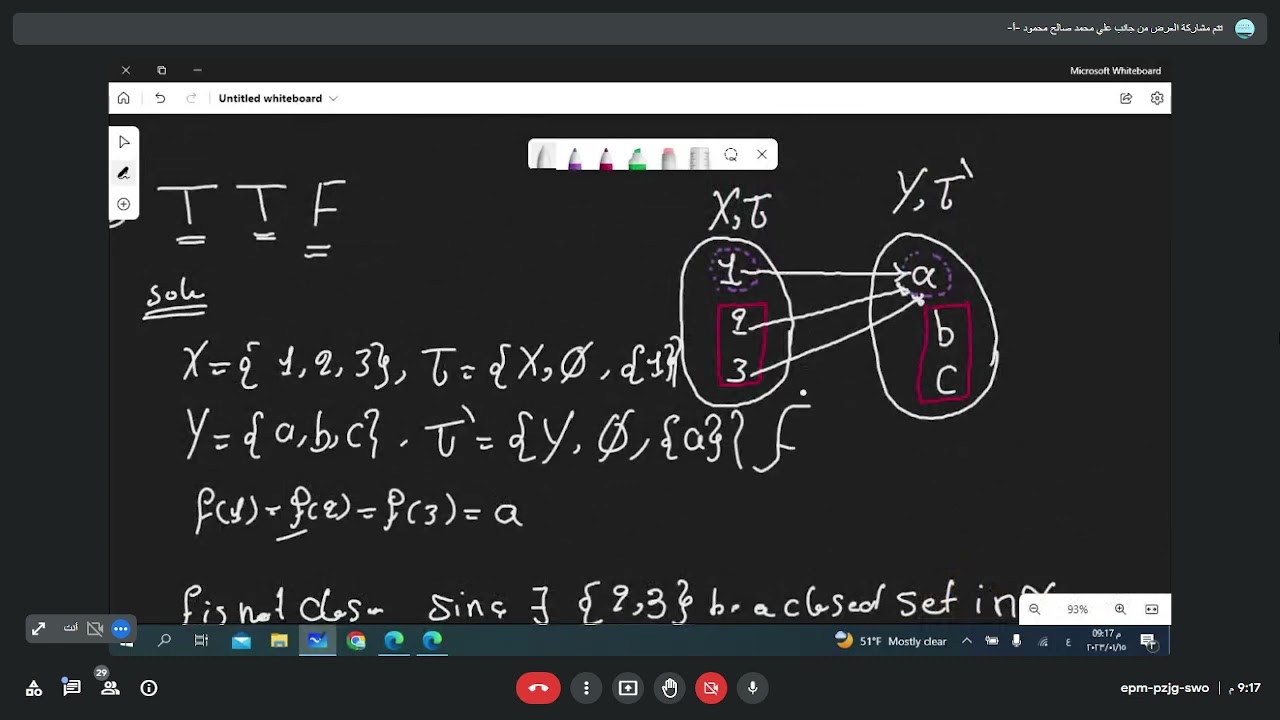 تتم مشاركة العرض من جانب علي محمد صالح محمود -أ-
Microsoft Whiteboard
Untitled whiteboard
T T F
X, τ
Y, τ`
1
2
3
a
b
c
soln
X={ 1,2,3}, τ={X,∅,{1}
Y={a,b,c} . τ`={Y,∅,{a}}
f(1)=f(2)=f(3)=a
f is not close sinc ∃ {2,3} be a closed set in X
93%
51°F Mostly clear
ع
09:17 م
٢٠٢٣/٠١/١٥
29
epm-pzjg-swo | 9:17 م